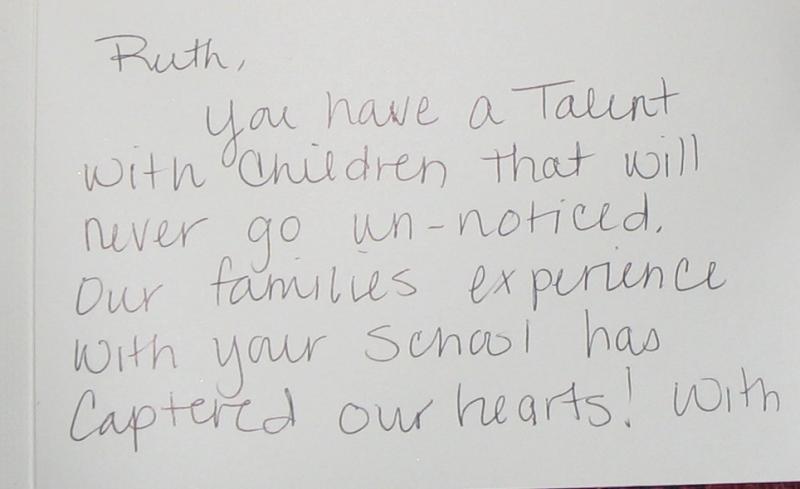 Ruth,
you have a Talent
with Children that will
never go un-noticed.
Our families experience
with your School has
Captered our hearts! With